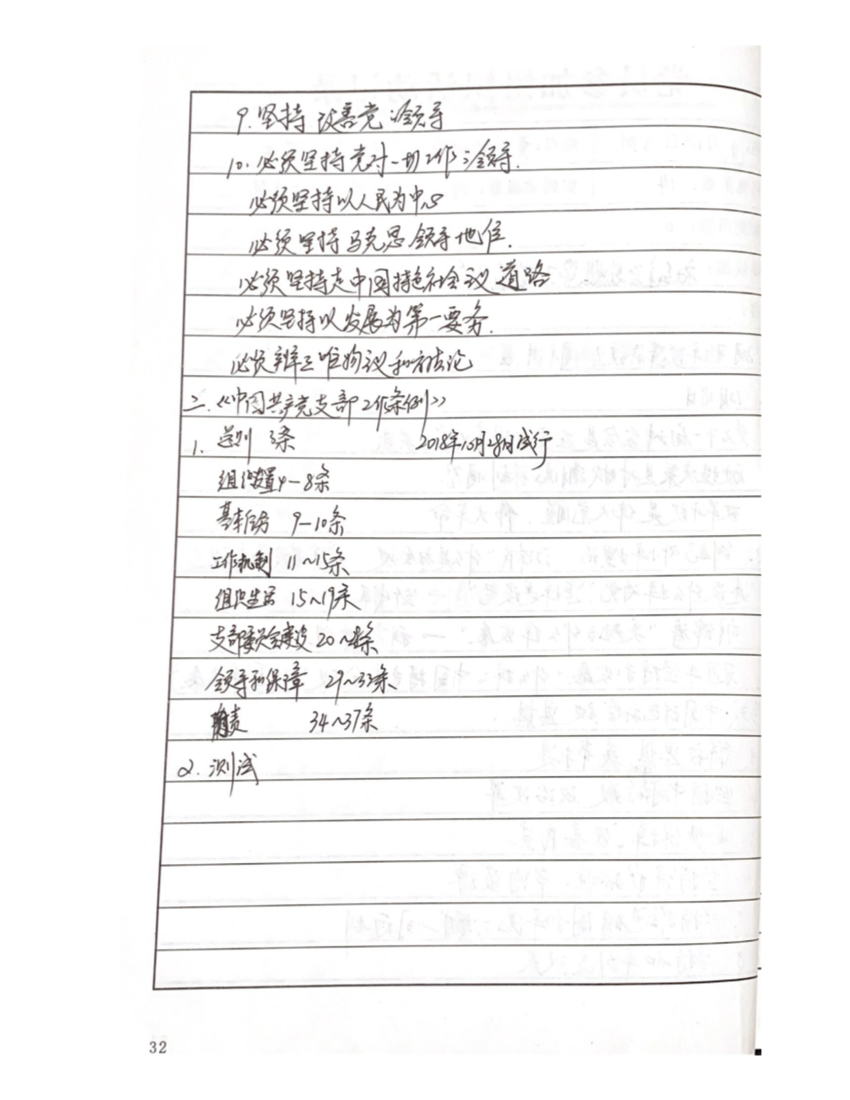 9. 坚持改善党之领导
10. 必须坚持党对一切工作之领导.
必须坚持以人民为中心
必须坚持马克思领导地位.
必须坚持走中国特色社会议道路
必须坚持以发展为第一要务.
必须辩正唯物议和方法论
二.《中国共产党支部工作条例》
1. 总则 3条 2018年10月28日试行
组织设置4-8条
基本任务 9-10条
工作机制 11~15条
组织生活 15~19条
支部委员会建设 20~28条
领导和保障 29~33条
附责 34~37条
2. 测试
32